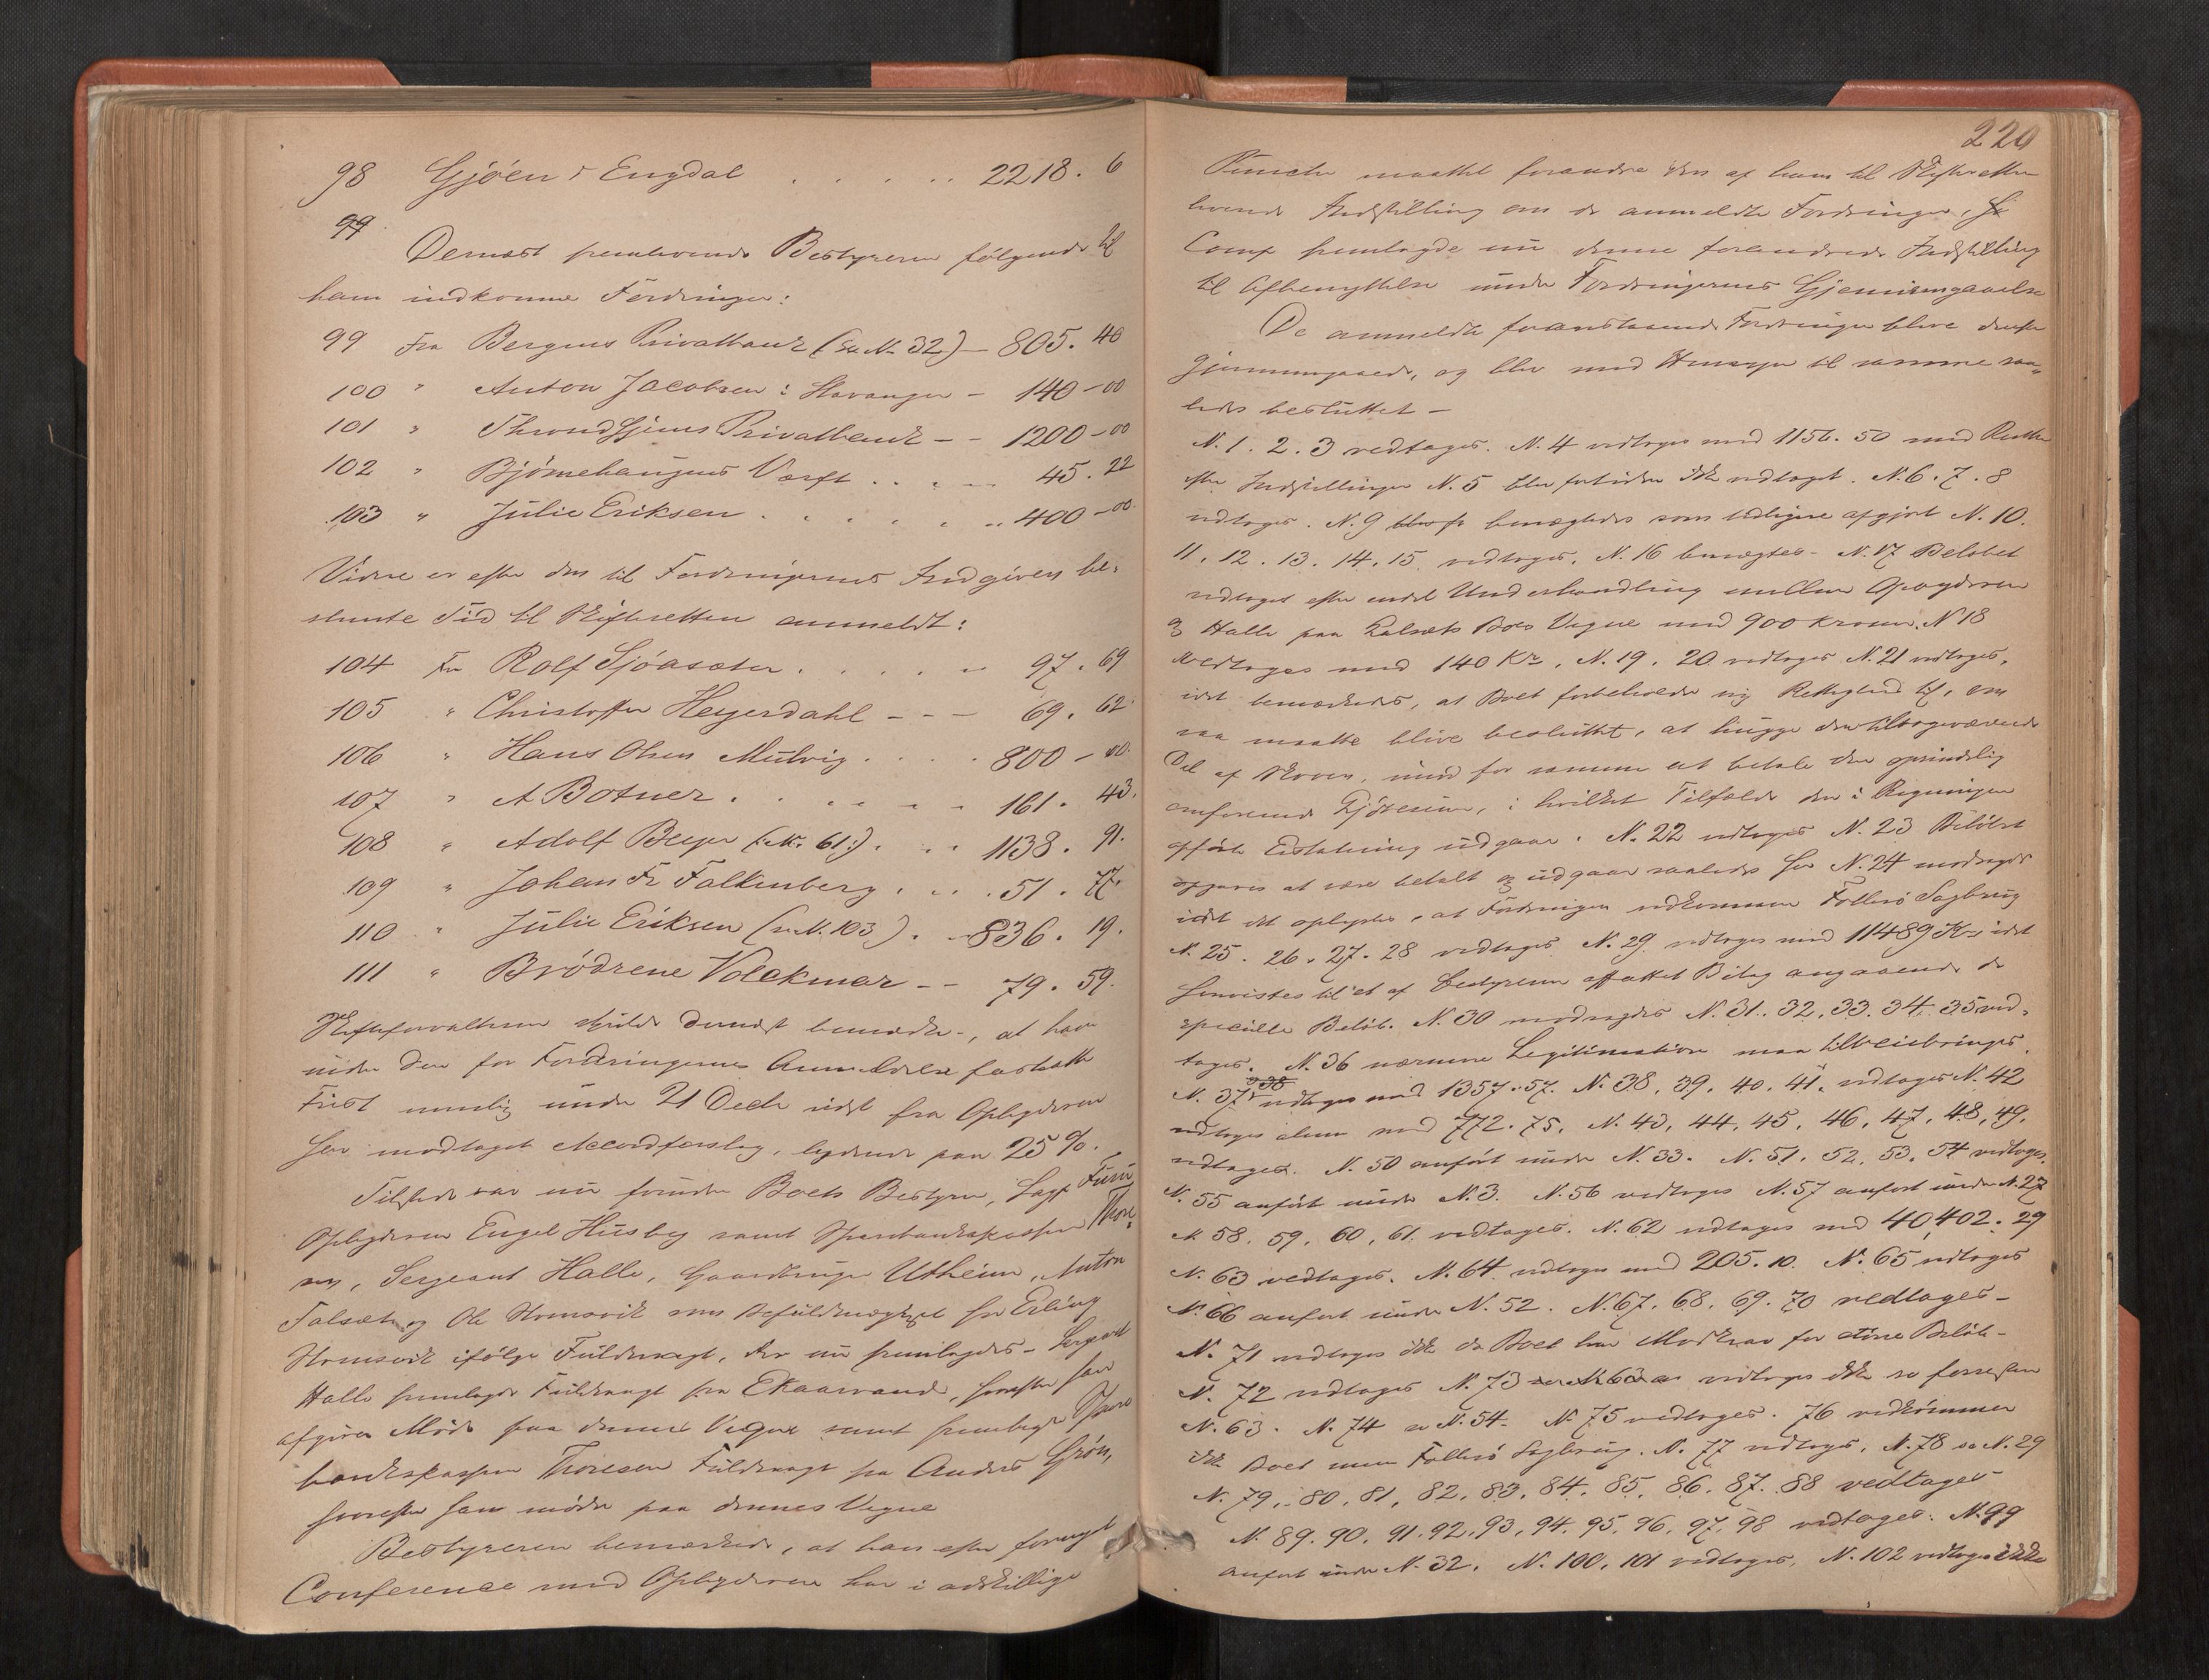 98 Gjöen i Engdal . . . . . 2218. 6
99
Dernæst fremleverede Bestyreren følgende til
ham indkomne Fordringer:
99 Fra Bergens Privatbank (se N. 32) – 805. 40
100 " Anton Jacobsen i Stavanger – 140–00
101 " Throndhjems Privatbank – – 1200–00
102 " Bjørnehaugens Værft . . . . 45. 22
103 " Julie Eriksen . . . . . 400–00
Videre er efter den til Fordringernes Indgivelse be-
stemte Tid til Skifteretten anmeldt:
104 Fra Rolf Sjöasæter . . . . . 97. 69
105 " Christoffer Heyerdahl – – – 69. 62
106 " Hans Olsen Mulvig . . . . 800–00
107 " A Botner . . . . . . 161. 43.
108 " Adolf Beyer (N. 61) . . . 1138. 91.
109 " Johan Fr Falkenberg . . . 51. 77.
110 " Julie Eriksen (se N. 103) . –836. 19.
111 " Brödrene Volckmar – – 79. 59.
Skifteforvalteren skulde dernæst bemærke, at han
inden den for Fordringernes Anmeldelse fastsatte
Frist nemlig under 21 Decbr sidst fra Opbyderen
har modtaget Accordforslag, lydende paa 25 %.
Tilstede var nu foruden Boets Bestyrer, Sagf Furu
Opbyderen Engel Husby samt Sparebankkasserer Thore-
sen, Sergeant Halle, Gaardbruger Utheim, Anton
Talsæt og Ole Stomsvik som befuldmægtiget for Erling
Stomsvik ifølge Fuldmagt, der nu fremlagdes – Sergeant
Halle fremlagde Fuldmagt fra E Kaarvand, hvorefter han
afgiver Møde paa dennes Vegne samt fremlagde Spare
bankkasserer Thoresen Fuldmagt fra Anders Grön,
hvorefter han møder paa dennes Vegne
Bestyreren bemærkede, at han efter foregaaet
Conference med Opbyderen har i adskillige
229
Puncter maattet forandre den af ham til Skifteretten
leverede Indstilling om de anmeldte Fordringer, Hr
Comp fremlagde nu denne forandrede Indstilling
til Afbenyttelse under Fordringernes Gjennemgaaelse
De anmeldte foranstaaende Fordringer bleve derefter
gjennemgaaede, og blev med Hensyn til samme saa-
ledes besluttet –
N. 1. 2. 3 vedtages. N. 4 vedtoges med 1156. 50 med Renter
efter Indstillingen N. 5 blev fortiden ikke vedtaget. N. 6. 7. 8
vedtoges. N. 9 benægtedes som tidligere afgjort N. 10.
11. 12. 13. 14. 15 vedtoges. N. 16 benægtes – N. 17 Beløbet
vedtaget efter endel Underhandling mellem Opbyderen
og Halle paa Talsæts Boes Vegne med 900 Kroner. N 18
Vedtages med 140 Kr. N. 19. 20 vedtoges N. 21 vedtoges,
idet bemærkedes, at Boet forbeholder sig Rettighed til, om
saa maatte blive besluttet, at hugge den tilbageværende
Del af Skoven, imod for samme at betale den oprindelig
omforenede Kjøbesum, i hvilket Tilfælde den i Regningen
opførte Erstatning udgaar. N. 22 vedtoges N. 23 Beløbet
opgaves at være betalt og udgaar saaledes her N. 24 modsagdes
idet det oplystes, at Fordringen vedkommer Follesø Sagbrug
N. 25. 26. 27. 28 vedtoges N. 29 vedtoges med 11489 Kr idet
henvistes til et af Bestyreren affattet Bilag angaaende de
specielle Beløb. N. 30 modsagdes N. 31. 32. 33. 34. 35 ved-
tages. N. 36 nærmere Legitimation maa tilveiebringes.
N. 37 vedtoges med 1357. 57. N. 38. 39. 40. 41. vedtoges N. 42
vedtoges alene med 772. 75. N. 43, 44, 45, 46, 47, 48, 49.
vedtages. N. 50 anført under N. 33. N. 51. 52. 53. 54 vedtoges.
N. 55 anført under N. 3. N. 56 vedtoges N. 57 anført under N. 27
N 58. 59. 60. 61. vedtages. N. 62 vedtages med 40,402. 29
N. 63 vedtages. N. 64. vedtoges med 205. 10. N. 65 vedtoges
N. 66 anført under N. 52. N. 67. 68. 69. 70 vedtages –
N. 71 vedtoges ikke da Boet har Modkrav for større Beløb –
N. 72 vedtoges N. 73 vedtoges ikke se forresten
N. 63. N. 74 se N. 54. N. 75 vedtoges. 76 vedkommer
ikke Boet men Follesø Sagbrug. N. 77 vedtoges, N. 78 se N. 29
N. 79. 80. 81. 82. 83. 84. 85. 86. 87. 88 vedtages
N. 89. 90. 91. 92. 93. 94. 95. 96. 97. 98 vedtages. N. 99
anført under N. 32. N. 100. 101 vedtoges, N. 102 vedtoges ikke